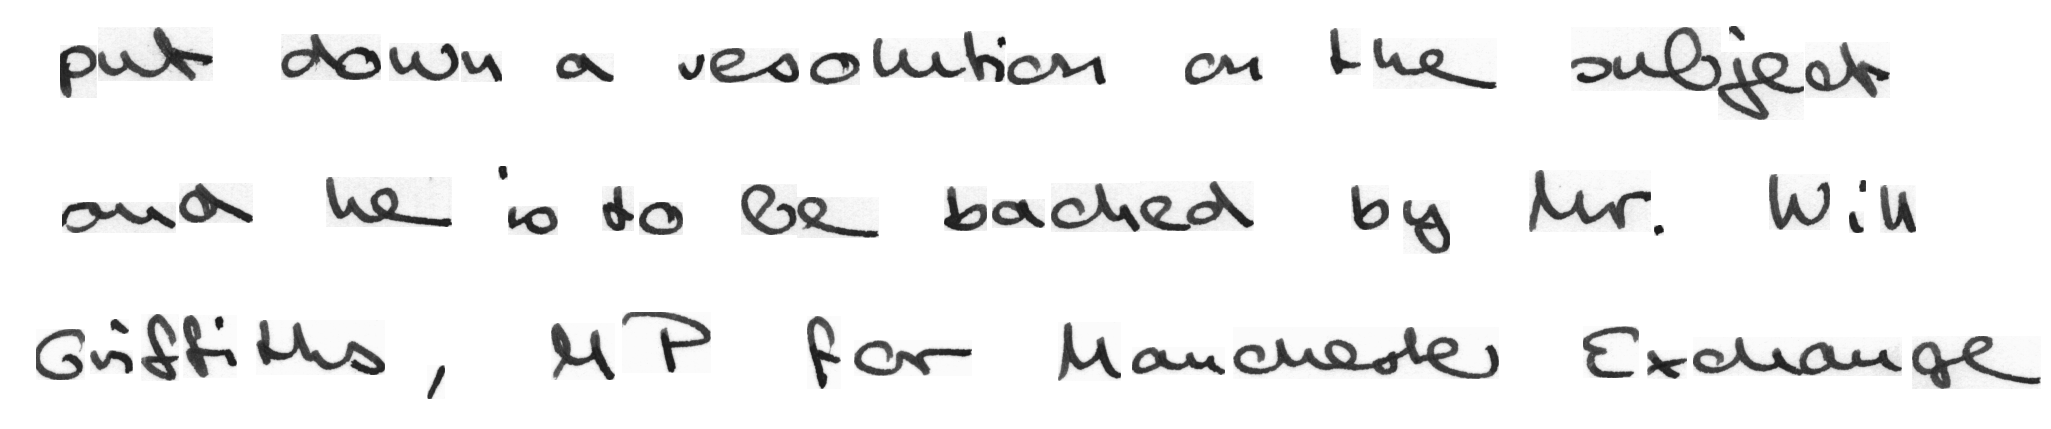 put down a resolution on the subject
and he is to be backed by Mr. Will
Griffiths, MP for Manchester Exchange